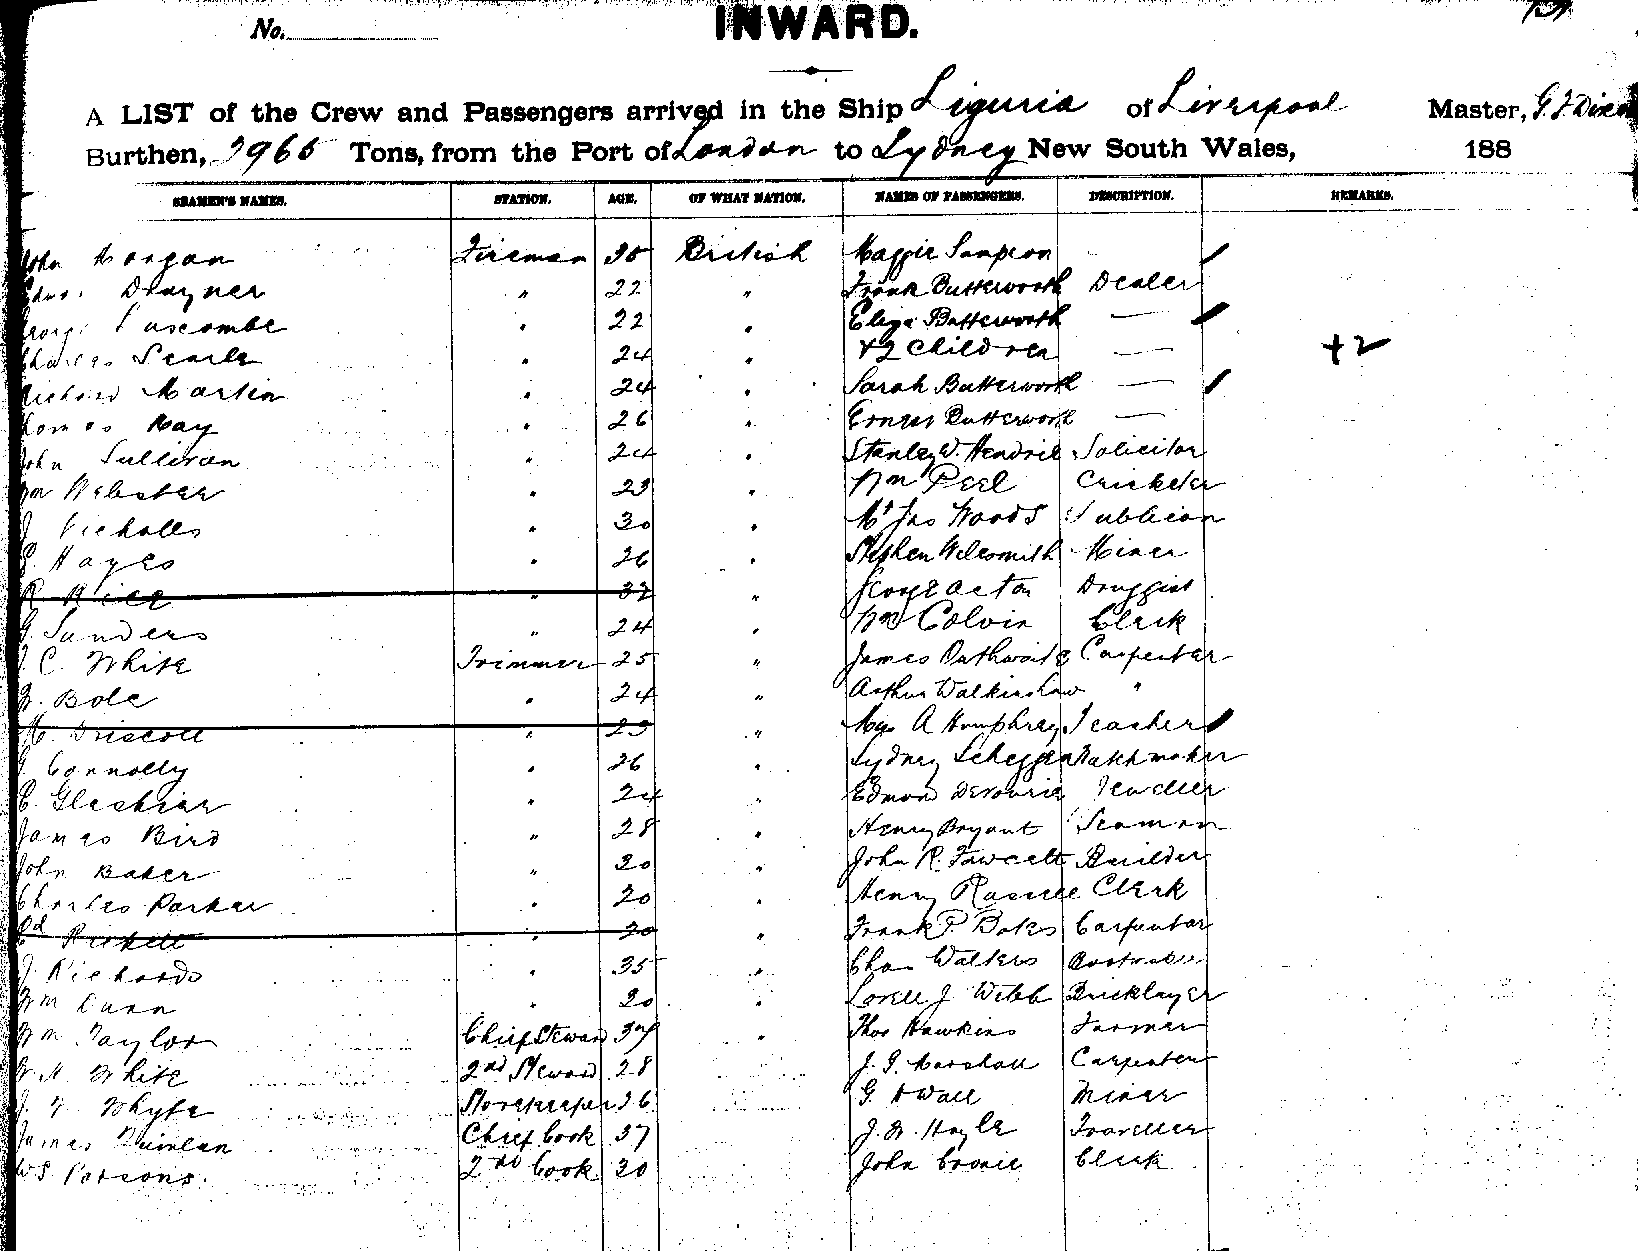 No.
INWARD.
A LIST of the Crew and Passengers arrived in the Ship Liguria of Liverpool Master, G. J. Dixon
Burthen, Tons, from the Port of London to Sydney New South Wales, 188
SEAMEN'S NAMES. STATION. AGE. OF WHAT NATION. NAMES OF PASSENGERS. DESCRIPTION. REMARKS.
John Morgan Fireman British Maggie Sampson
Drayner " 22 " Frank Butterworth Dealer
George Luscombe " 22 " Eliza Butterworth —
Charles Searle " 24 " + 2 Children — + 2
Richard Martin " 24 " Sarah Butterworth —
Thomas Hay " 26 " Butterworth —
John Sullivan " 24 " Stanley W. Hendrie Solicitor
Wm Webster " 23 " Wm Peel Cricketer
J. Nicholls " 30 " Mr Jas Woods Publican
Hayes " 26 " Stephen Miner
R. Rice " 32 " George Acton Druggist
G. Sanders " 24 " Wm Colvin Clerk
J. C. White Trimmer 25 " James Outhwaite Carpenter
Bole " 24 " Arthur Walkinshaw "
M. Driscoll " 23 " A Humphrey Teacher
Connolly " 26 " Sydney Watchmaker
" 24 " Edmond
James Bird " 28 " Henry Bryant Seaman
John Baker " 20 " John R. Fawcett Builder
Charles Parker " 20 " Henry Clerk
" 20 " Frank P Carpenter
J. Richards " 35 " Chas Walters
Wm Dunn " 20 " J Webb Bricklayer
Wm Taylor Chief Steward 37 " Thos Hawkins Farmer
White 2nd Steward 28 Marshall Carpenter
Whyte Storekeeper 36 G. Miner
James Quinlan Chief Cook 37 J. W. Hoyle Traveller
W S Parsons. 2nd Cook 20 John Clerk